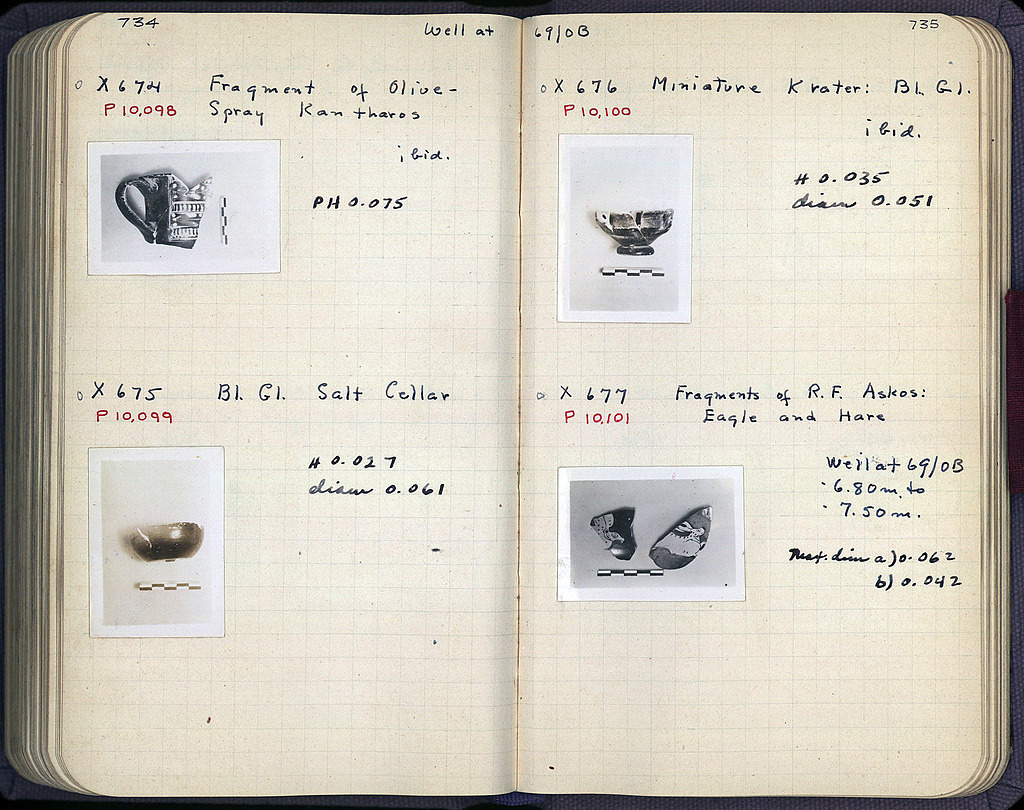 734
Well at
X 674 Fragment of Olive-
P 10,098 Spray Kantharos
ibid.
PH 0.075
X 675 Bl. Gl. Salt Cellar
P 10,099
H 0.027
diam 0.061
69/ΟΒ
735
X 676 Miniature Krater: Bl. Gl.
P 10,100
ibid.
H 0.035
diam 0.051
X 677 Fragments of R.F. Askos:
P 10,101 Eagle and Hare
Well at 69/ΟΒ
-6.80 m. to
-7.50 m.
Max. dim a) 0.062
b) 0.042